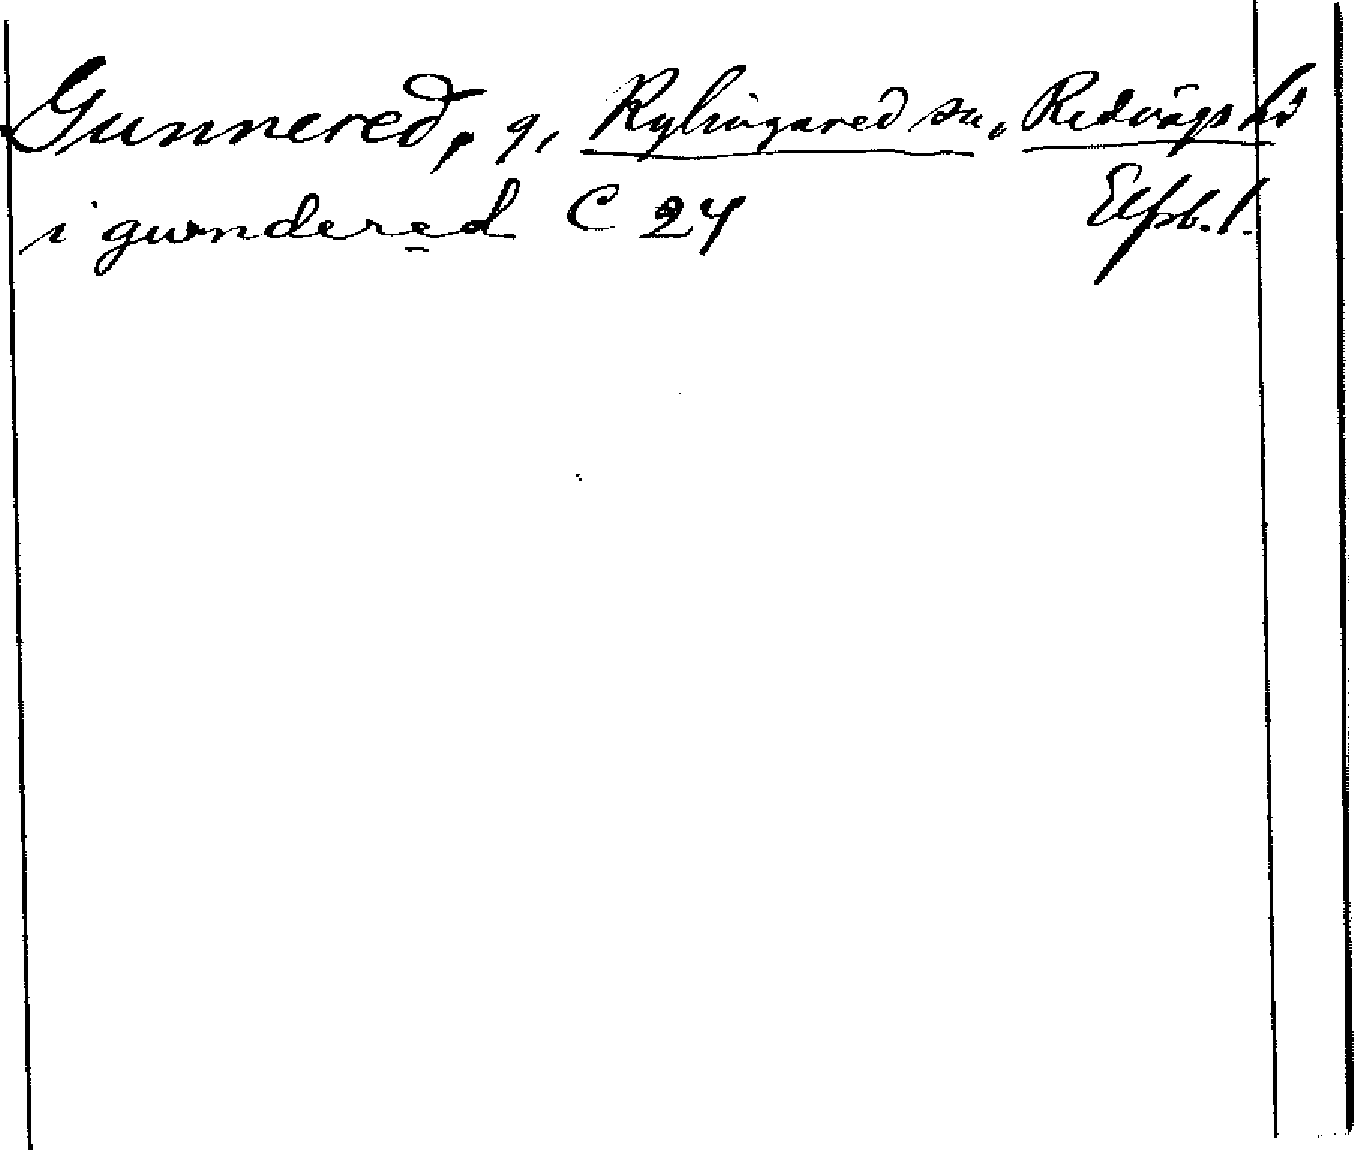 Gunnered, g, Kylingared sn, Redvägs hd
i gundered C 24 Elfsb. l.